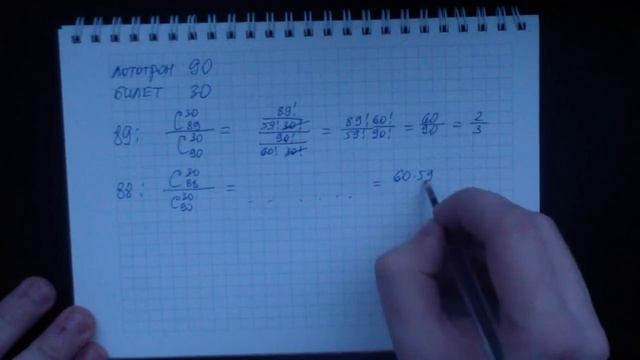 лототрон 90
билет 30
89: C₈₉³⁰ / C₉₀³⁰ = (89! / (59! 30!)) / (90! / (60! 30!)) = 89! 60! / (59! 90!) = 60/90 = 2/3
88: C₈₈³⁰ / C₉₀³⁰ = .. . . . . . = 60·59